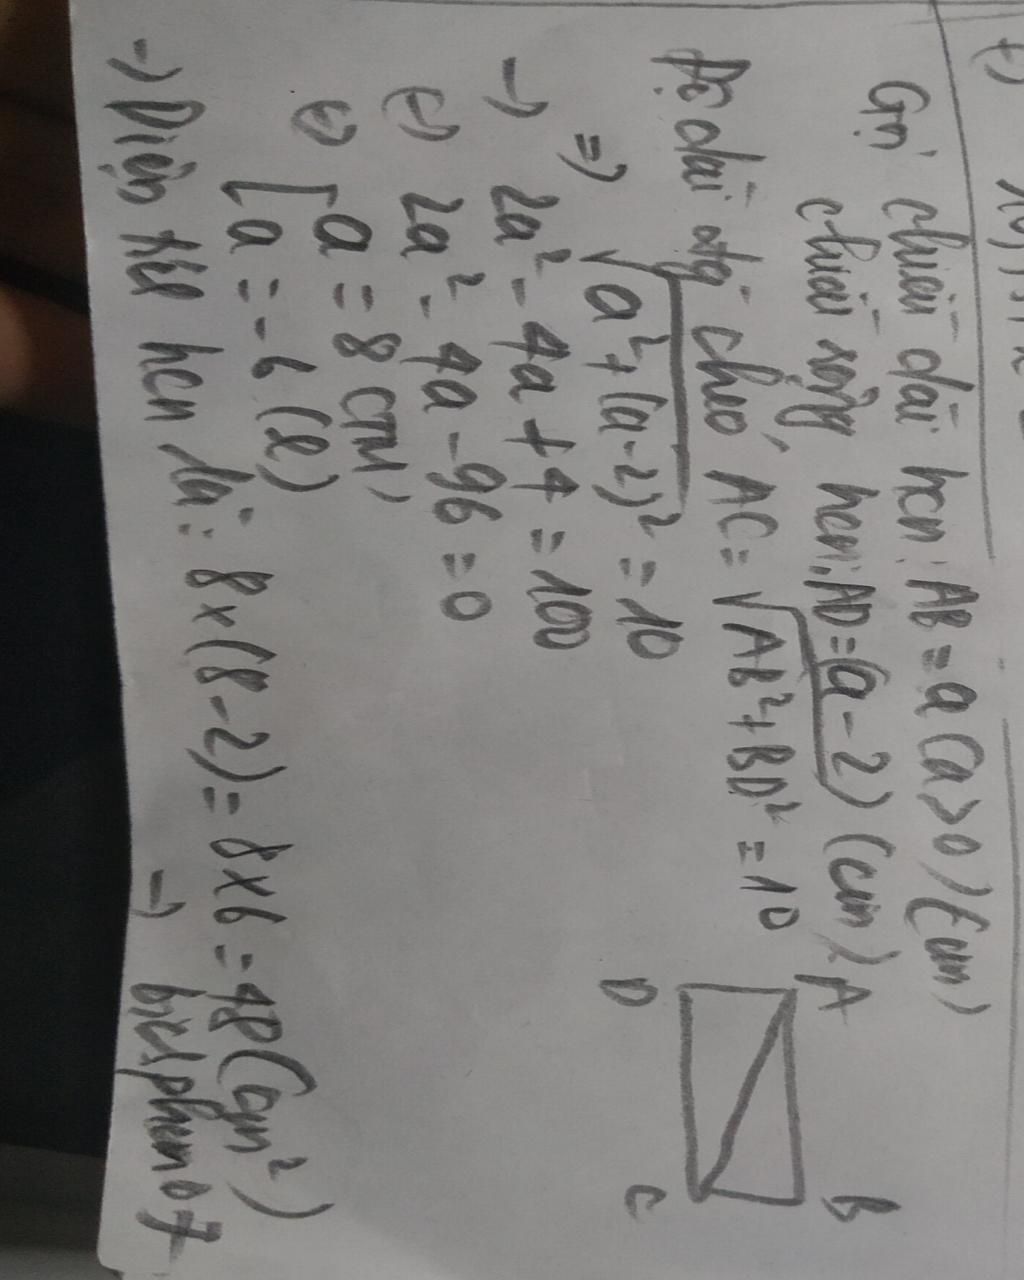 Gọi chiều dài hcn: AB = a (a>0) (cm)
chiều rộng hcn: AD = (a-2) (cm)
A
B
D
C
Độ dài đg chéo AC = √AB²+BD² = 10
=> √a²+(a-2)² = 10
-> 2a² - 4a + 4 = 100
(-) 2a² - 4a - 96 = 0
(-) [ a = 8 cm
a = -6 (l)
-> Diện tích hcn là: 8×(8-2) = 8×6 = 48 (cm²)
->